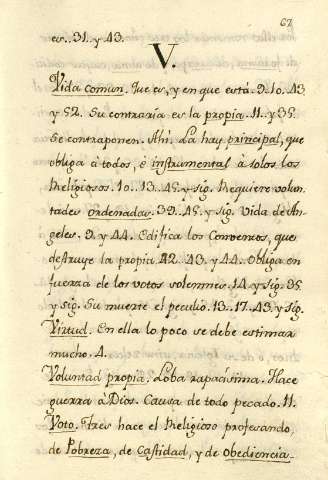 67
es..31. y 43.
V.
Vida comun. Que es, y en que está. 9. 10. 43
y 52. Su contraria es la propia. 11. y 35.
Se contraponen. Ahi. La hay principal, que
obliga à todos, è instrumental à solos los
Religiosos. 10.. 13.. 45. y sig. Requiere volun-
tades ordenadas. 39.. 45. y sig. Vida de An-
geles. 9. y 44. Edifica los Conventos, que
destruye la propia. 42.. 43. y 44. Obliga en
fuerza de los votos solemnes. 14. y sig. 35
y sig. Su muerte el peculio. 13.. 17.. 43. y sig.
Virtud. En ella lo poco se debe estimar
mucho. 4.
Voluntad propia. Loba rapacissima. Hace
guerra à Dios. Causa de todo pecado. 11.
Voto. Tres hace el Religioso profesando,
de Pobreza, de Castidad, y de obediencia.